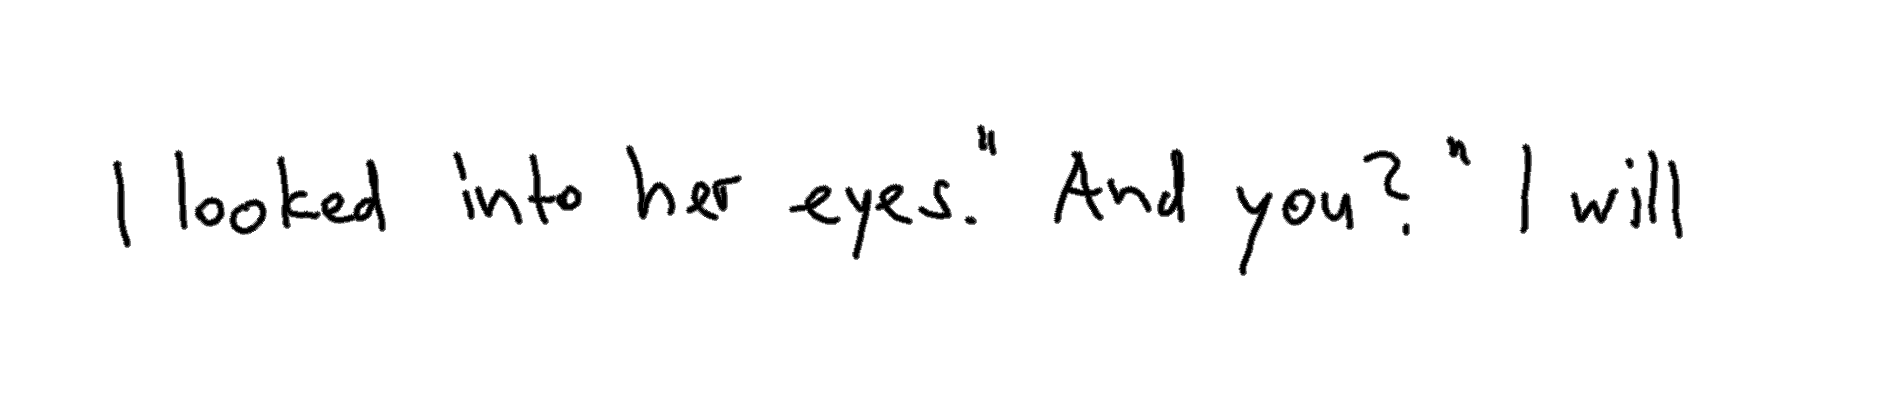 I looked into her eyes." And you?" I will